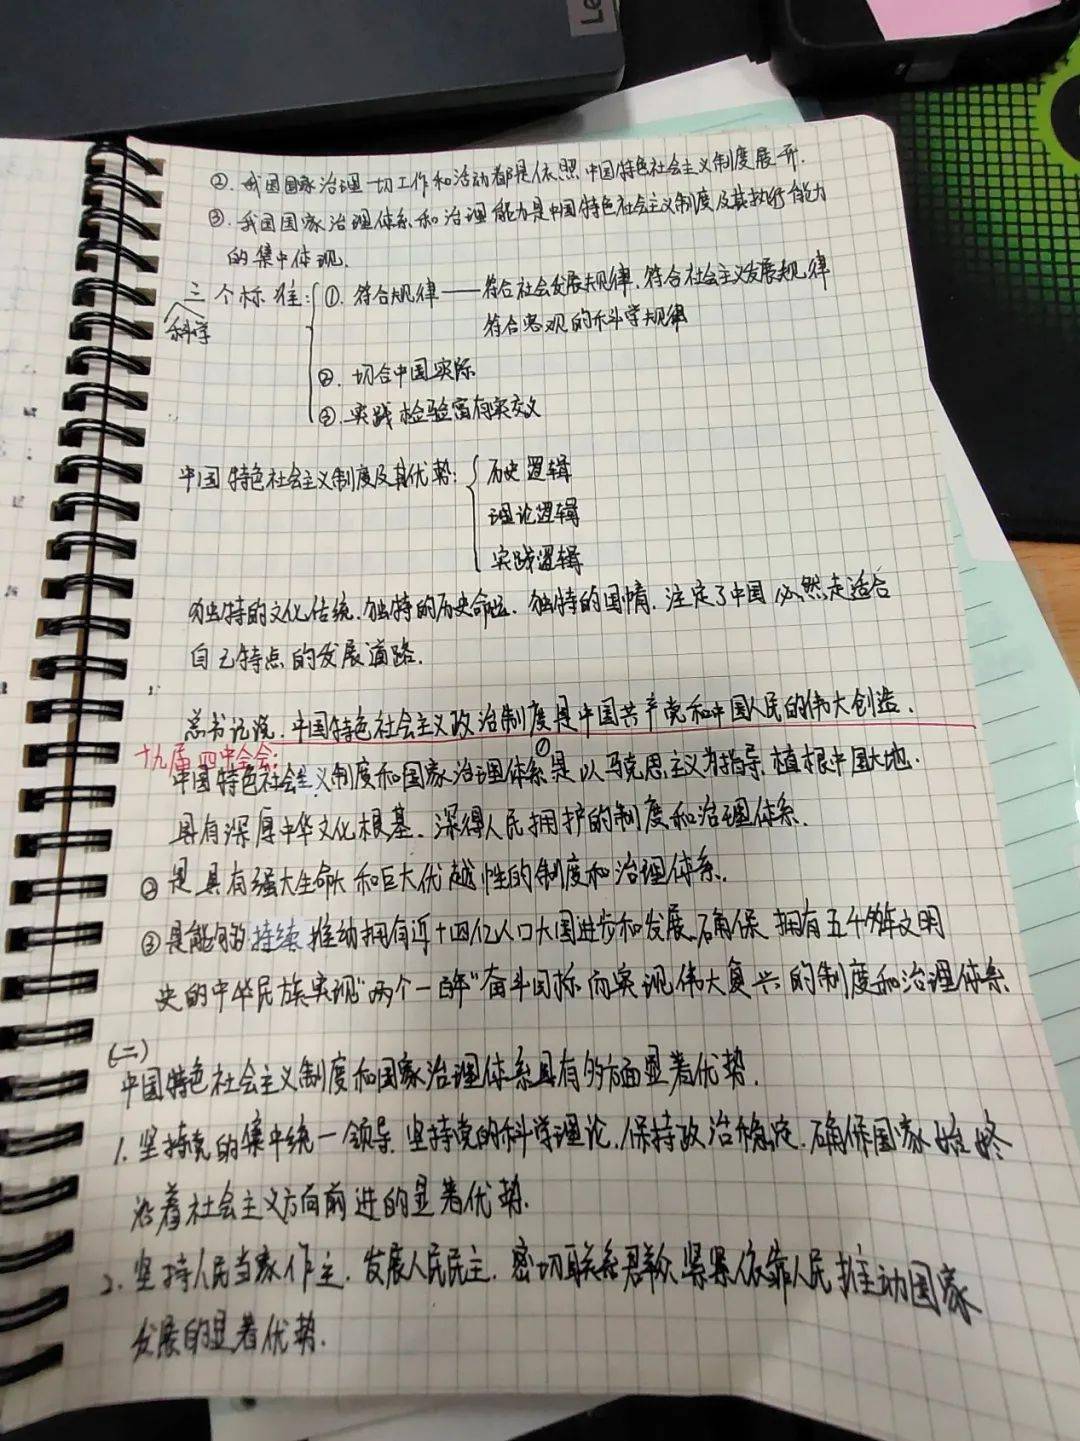 Le
②. 我国国家治理一切工作和活动都是依照中国特色社会主义制度展开.
③. 我国国家治理体系和治理能力是中国特色社会主义制度及其执行能力
的集中体现.
三个标准: ①. 符合规律——符合社会发展规律, 符合社会主义发展规律
科学
符合客观的科学规律
②. 切合中国实际
③. 实践检验富有实效
中国特色社会主义制度及其优势: 历史逻辑
理论逻辑
实践逻辑
独特的文化传统. 独特的历史命运. 独特的国情. 注定了中国必然走适合
自己特点的发展道路.
总书记说. 中国特色社会主义政治制度是中国共产党和中国人民的伟大创造.
十九届四中全会:
中国特色社会主义制度和国家治理体系①是以马克思主义为指导. 植根中国大地.
具有深厚中华文化根基. 深得人民拥护的制度和治理体系.
② 是具有强大生命力和巨大优越性的制度和治理体系.
③ 是能够持续推动拥有近十四亿人口大国进步和发展、确保拥有五千多年文明
史的中华民族实现"两个一百年"奋斗目标而实现伟大复兴的制度和治理体系
(二)
中国特色社会主义制度和国家治理体系具有多方面显著优势.
1. 坚持党的集中统一领导. 坚持党的科学理论. 保持政治稳定. 确保国家始终
沿着社会主义方向前进的显著优势.
2. 坚持人民当家作主. 发展人民民主. 密切联系群众 紧紧依靠人民推动国家
发展的显著优势.